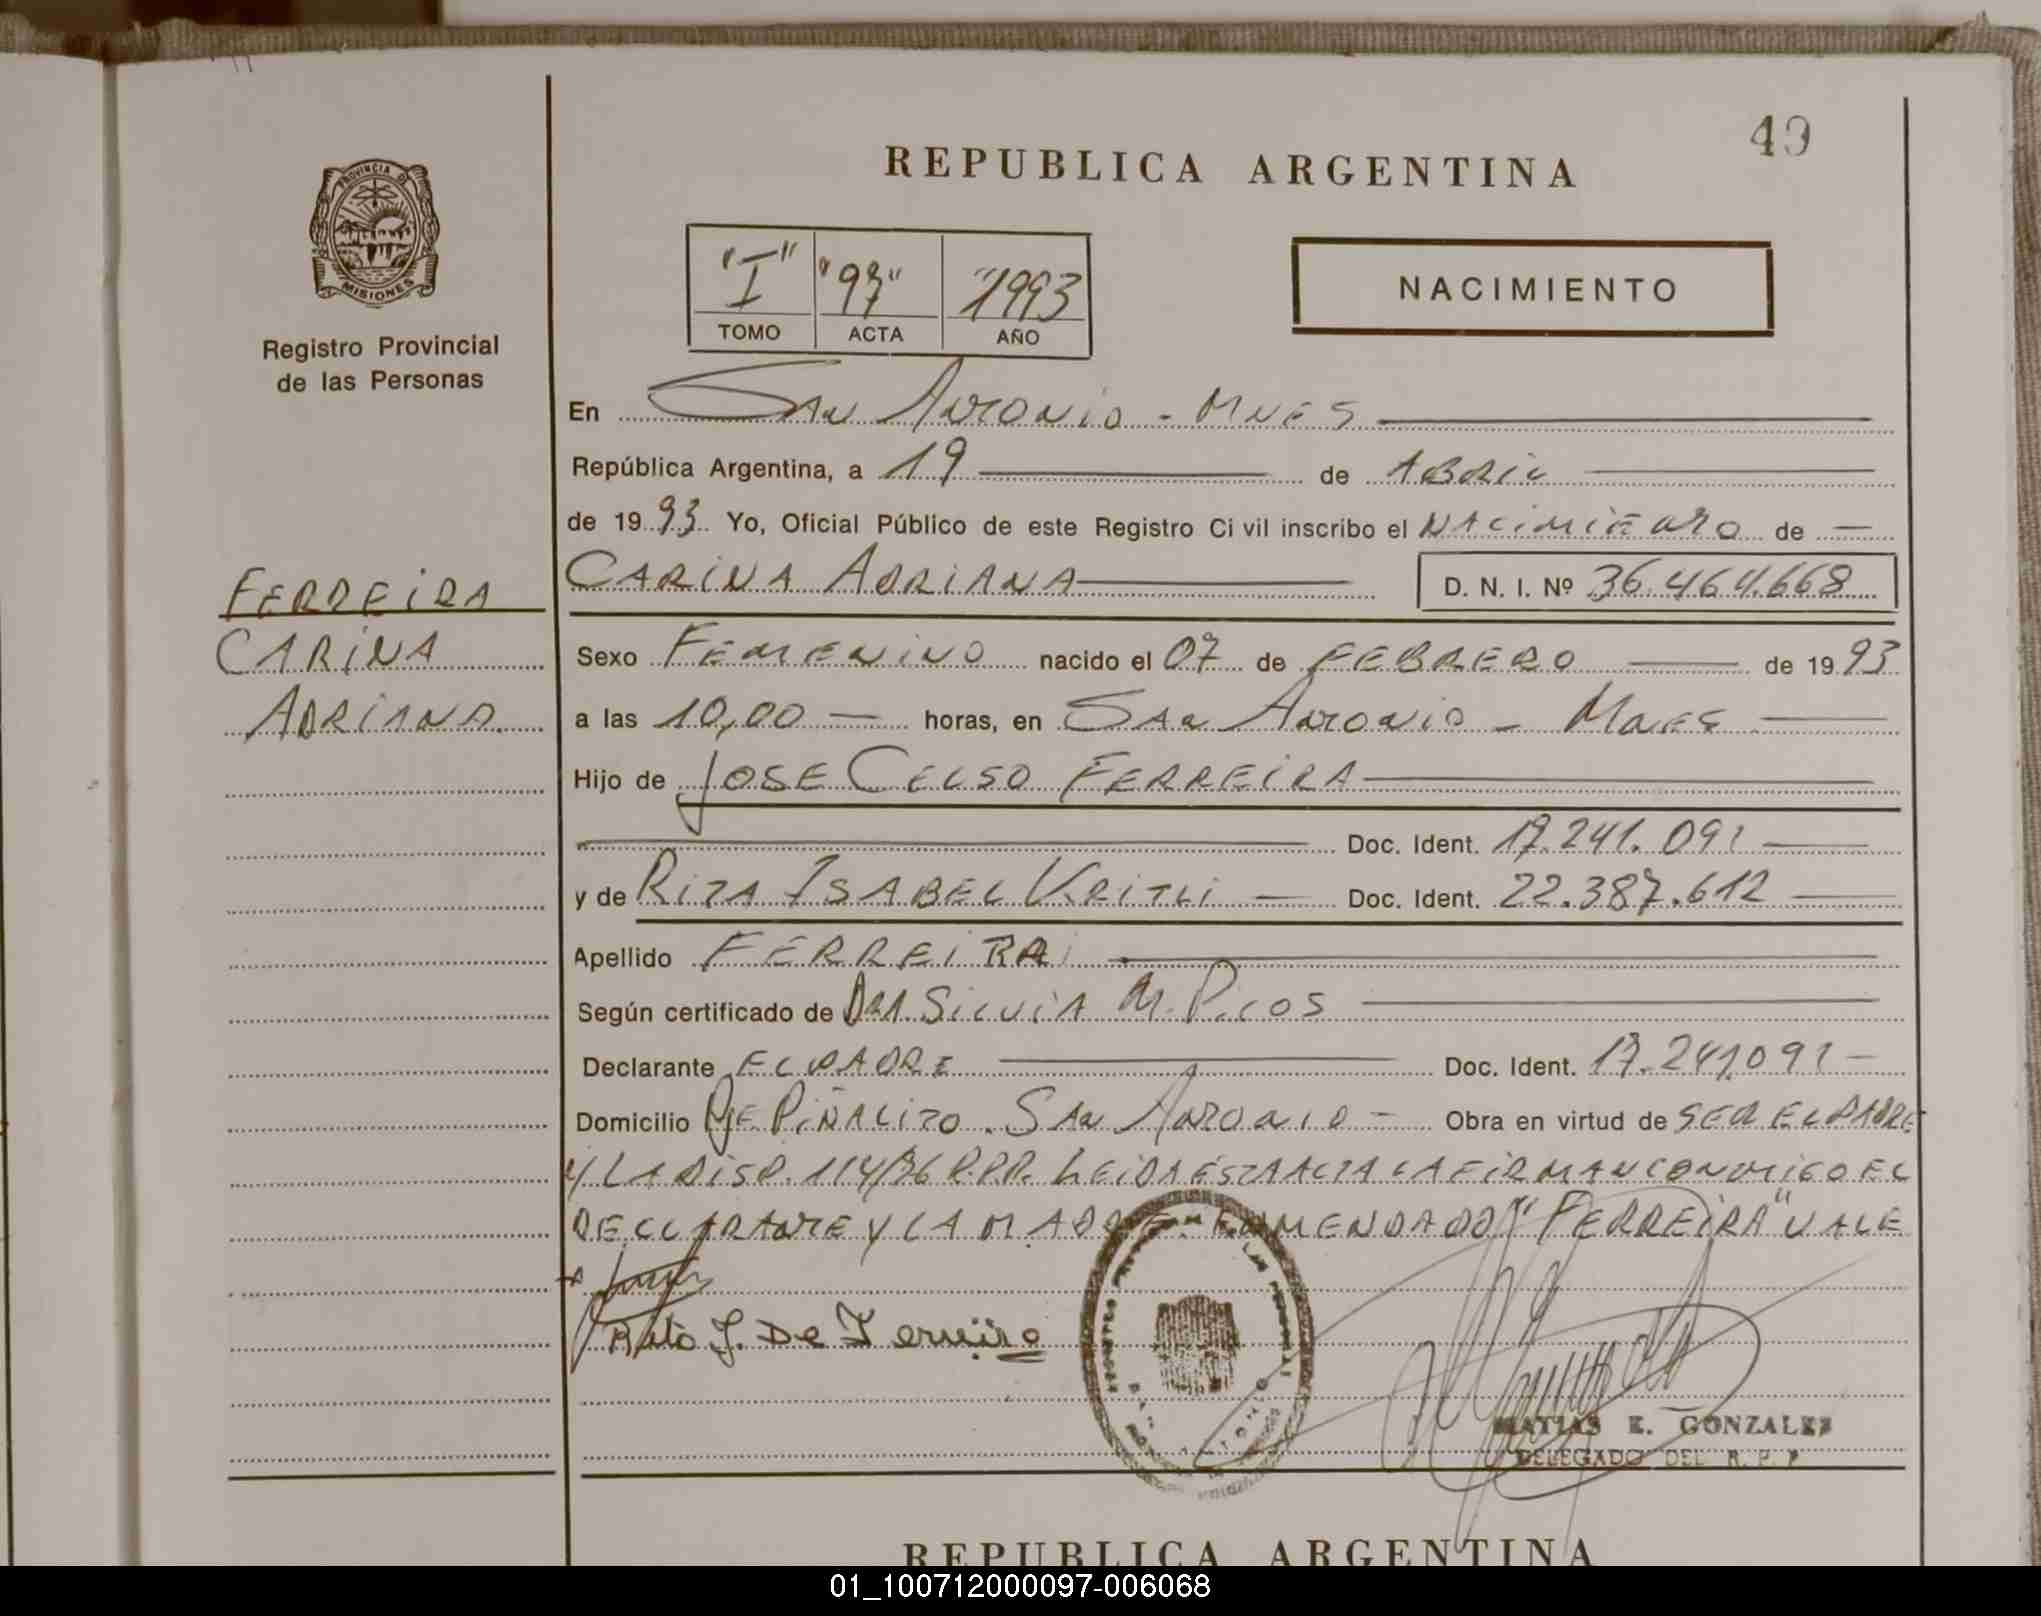 49
REPUBLICA ARGENTINA
PROVINCIA DE
MISIONES
Registro Provincial
de las Personas
"I" "97" "1993
TOMO ACTA AÑO
NACIMIENTO
En San Antonio - Mnes
República Argentina, a 19 de Abril
de 1993 Yo, Oficial Público de este Registro Civil inscribo el Nacimiento de
FERREIRA
CARINA
ADRIANA
CARINA ADRIANA D. N. I. Nº 36.464.668
Sexo FEMENINO nacido el 07 de FEBRERO de 1993
a las 10,00 horas, en San Antonio - Mnes
Hijo de JOSE CELSO FERREIRA
Doc. Ident. 17.241.091
y de RITA ISABEL KRITLI Doc. Ident. 22.387.612
Apellido FERREIRA
Según certificado de Dra. Silvia M. Picos
Declarante EL PADRE Doc. Ident. 17.241.091
Domicilio Pje. Piñalito. San Antonio - Obra en virtud de SER EL PADRE
y LA DISP. 114/86 R.P.P. LEIDA ESTA ACTA LA FIRMAN CONMIGO EL
DECLARANTE Y LA MADRE. ENMENDADO "FERREIRA" VALE
MATIAS E. GONZALEZ
DELEGADO DEL R. P. P
REPUBLICA ARGENTINA
01_100712000097-006068